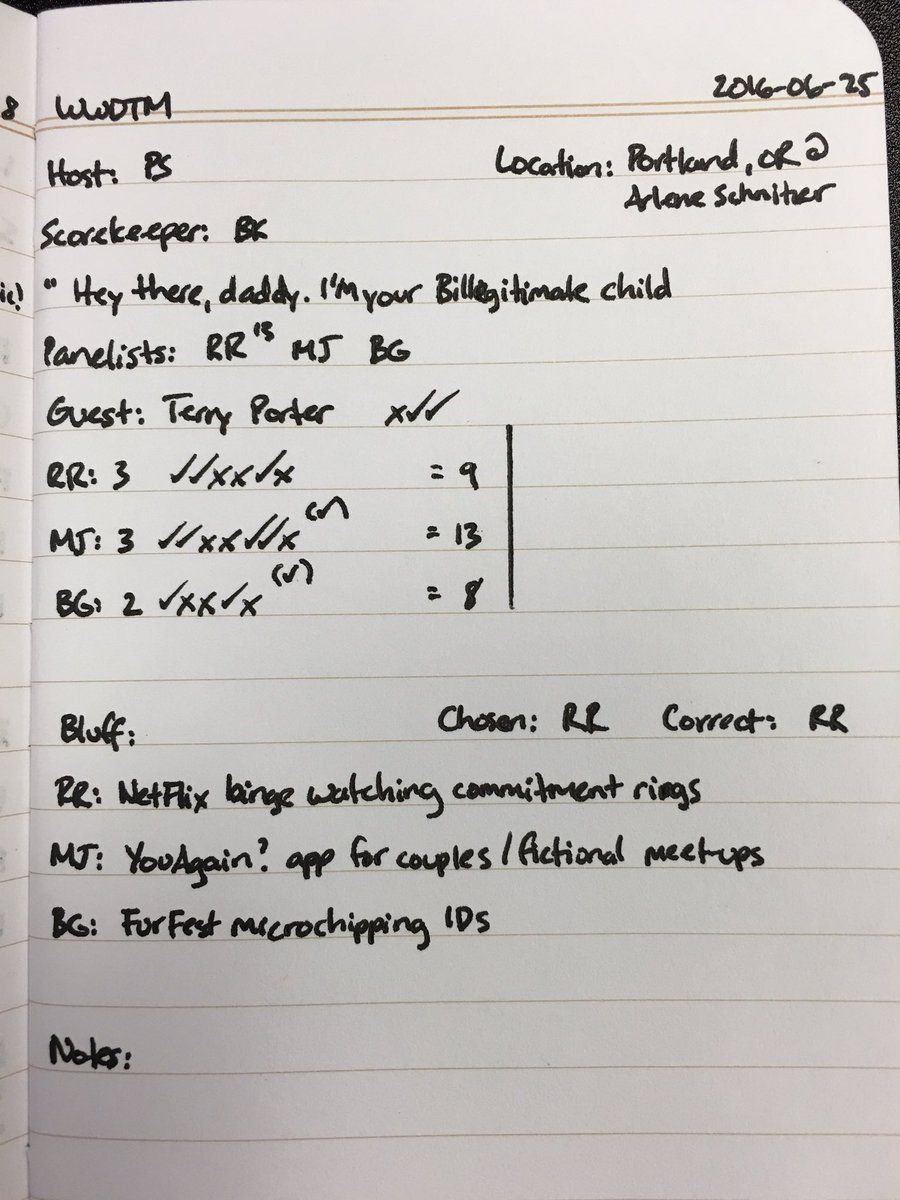 8
WWDTM 2016-06-25
Host: PS Location: Portland, OR @
Arlene Schnitzer
Scorekeeper: BK
ic! " Hey there, daddy. I'm your Billegitimate child
Panelists: RR MJ BG
Guest: Terry Porter x✓✓
RR: 3 ✓✓xx✓x = 9
MJ: 3 ✓✓xx✓✓x (✓) = 13
BG: 2 ✓xx✓x (✓) = 8
Bluff: Chosen: RR Correct: RR
RR: NetFlix binge watching commitment rings
MJ: YouAgain? app for couples / fictional meet-ups
BG: FurFest microchipping IDs
Notes: